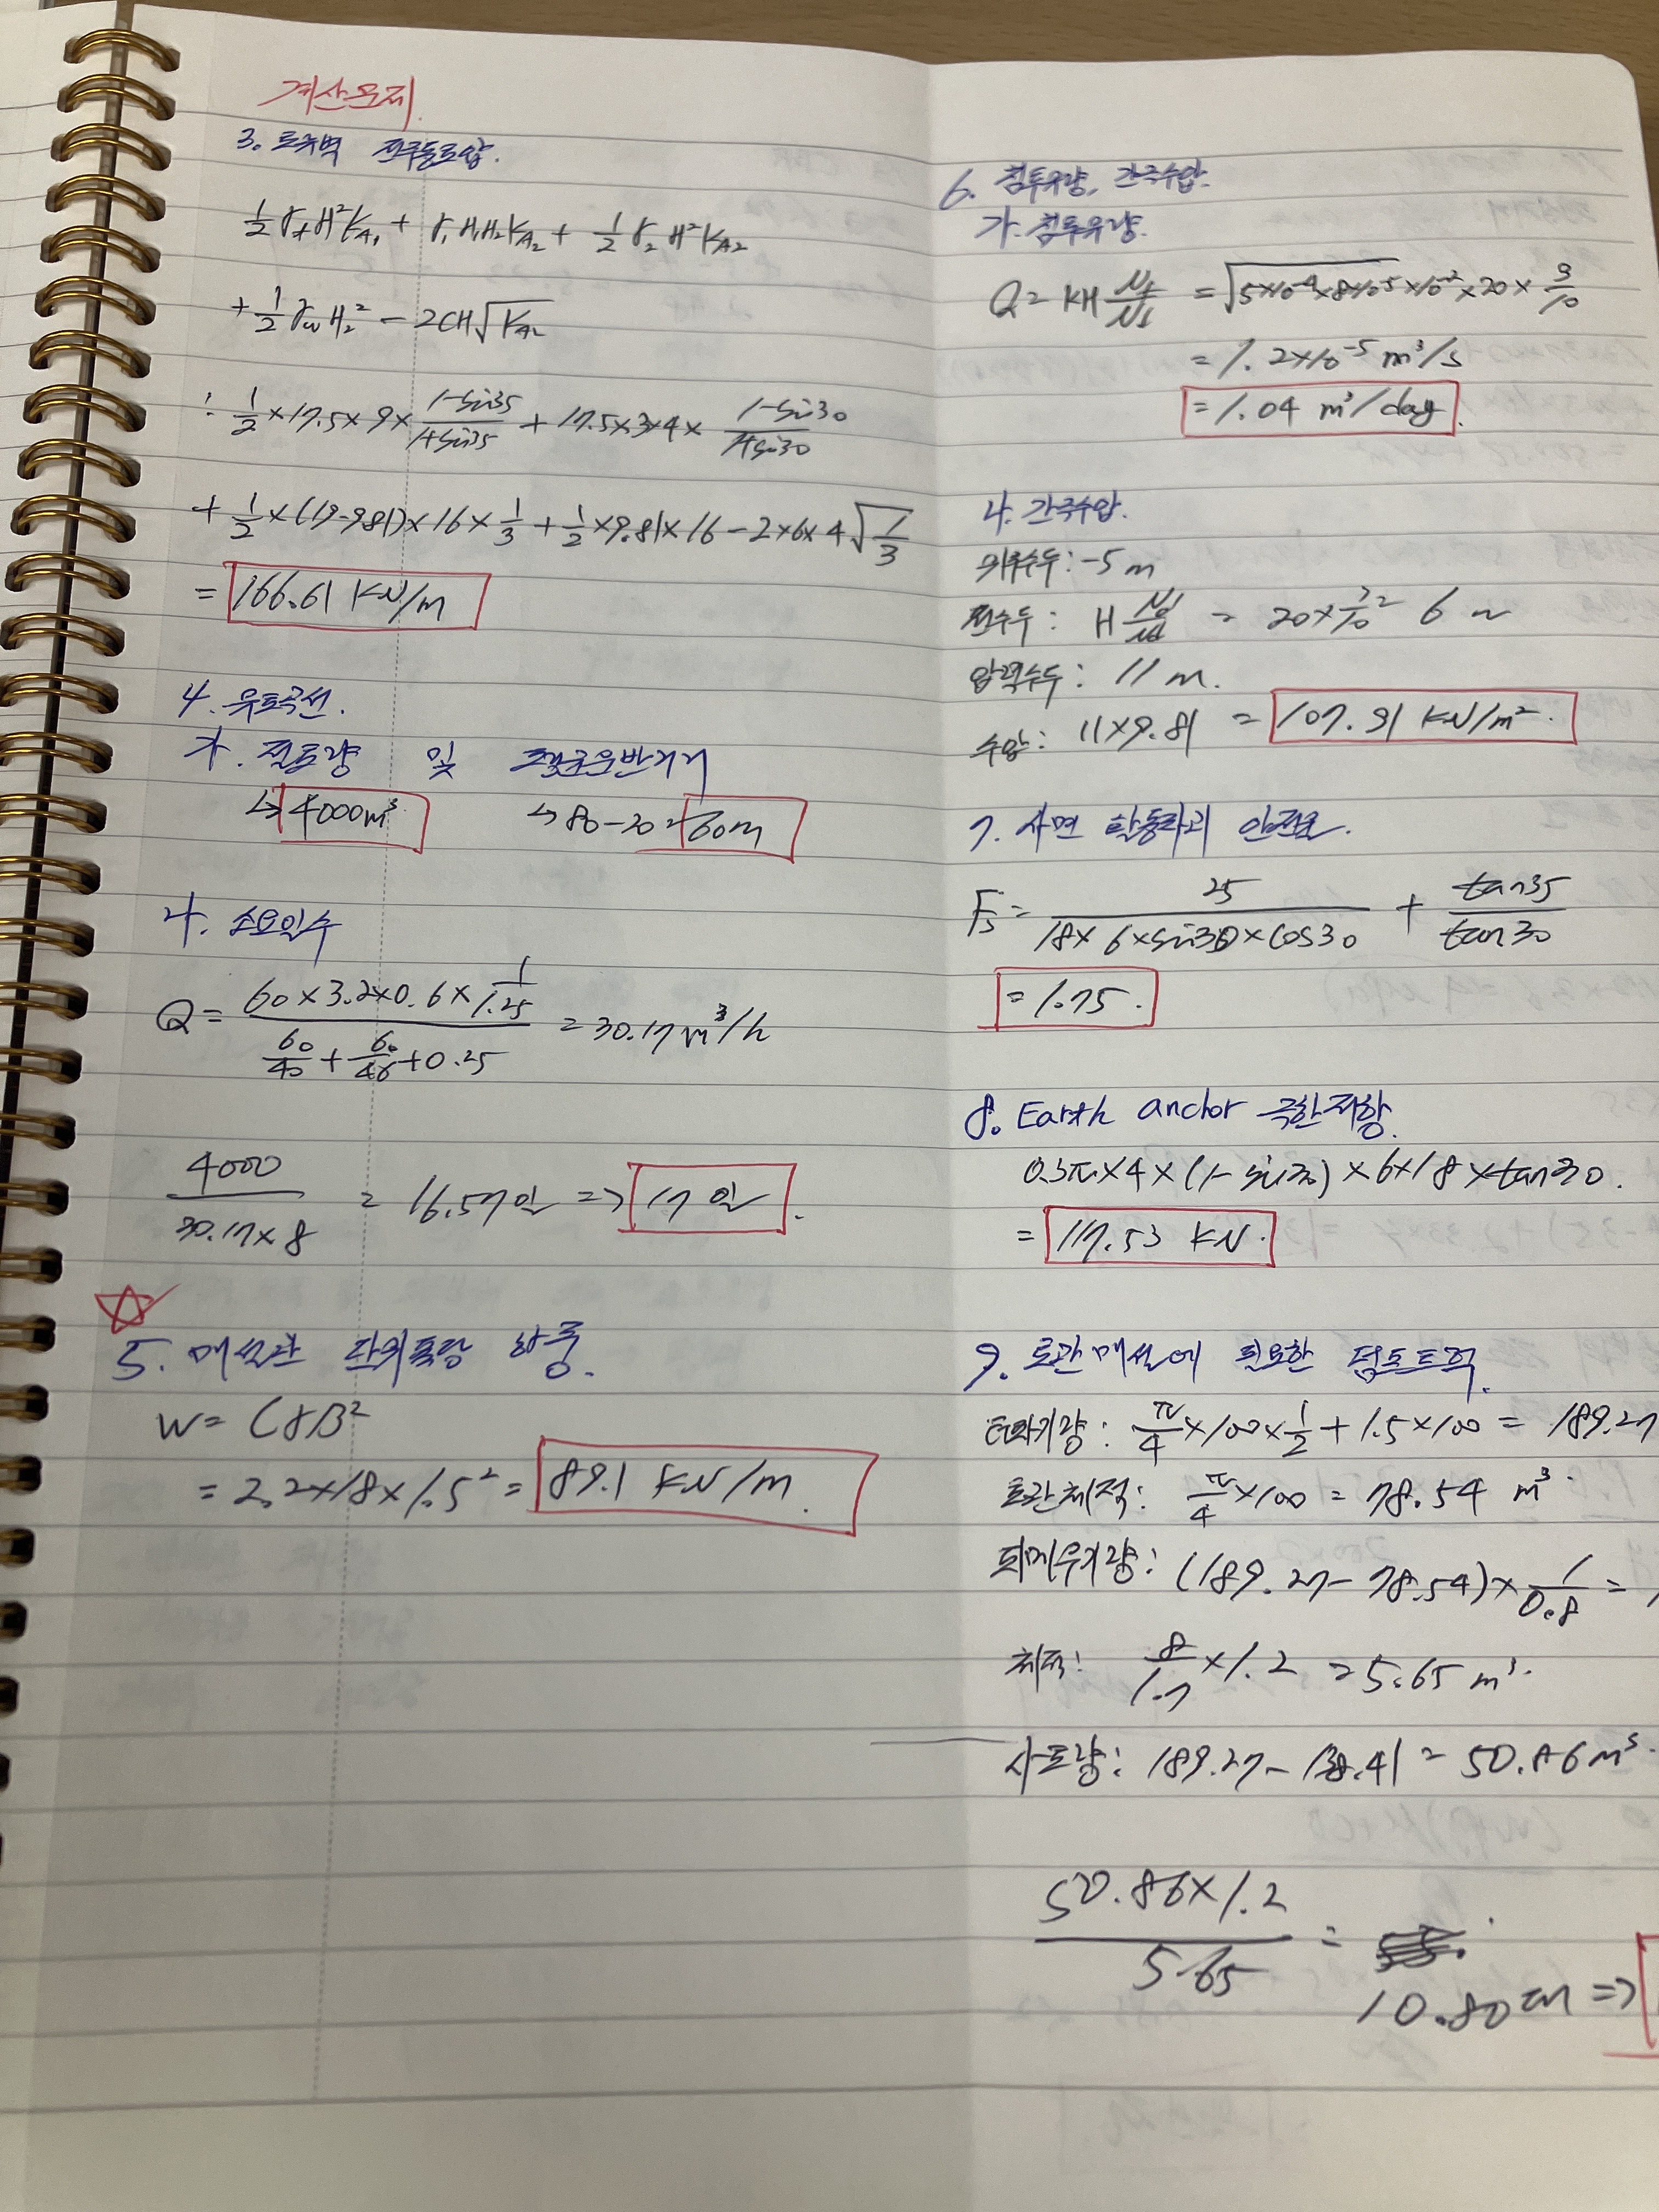 계산문제
3. 토류벽 전주동토압.
½γ₁H²K_A₁ + γ₁H₁H₂K_A₂ + ½γ₂H²K_A₂
+ ½γ_wH₂² - 2CH√K_A₂
: ½×17.5×9×(1-sin35)/(1+sin35) + 17.5×3×4×(1-sin30)/(1+sin30)
+ ½×(19-9.81)×16×⅓ + ½×9.81×16 - 2×6×4√(1/3)
= 166.61 KN/m
4. 유토곡선.
가. 절토량 및 평균운반거리
↳ 4000m³ ↳ 80-20=60m
나. 소요일수
Q = (60×3.2×0.6×1/1.25)/(60/40 + 60/48 + 0.25) = 30.17 m³/h
4000/(30.17×8) = 16.57일 => 17일.
☆
5. 매설관 단위폭당 하중.
W = CγB²
= 2.2×18×1.5² = 89.1 KN/m
6. 침투유량, 간극수압.
가. 침투유량.
Q = KH Nf/Nd = √(5×10⁻⁴×8×10⁻⁵)×10⁻²×20×3/10
= 1.2×10⁻⁵ m³/s
= 1.04 m³/day
나. 간극수압.
위치수두: -5m
전수두: H Nd'/Nd = 20×3/10 = 6m
압력수두: 11m.
수압: 11×9.81 = 107.91 KN/m².
7. 사면 활동파괴 안전율.
Fs = 25/(18×6×sin30×cos30) + tan35/tan30
= 1.75.
8. Earth anchor 극한저항.
0.3π×4×(1-sin30)×6×18×tan30.
= 117.53 KN.
9. 토관매설에 필요한 덤프트럭.
터파기량: π/4×100×½ + 1.5×100 = 189.27
토관체적: π/4×100 = 78.54 m³.
되메우기량: (189.27-78.54)×1/0.8 =
체적: 8/1.7×1.2 = 5.65 m³.
사토량: 189.27-138.41 = 50.86 m³.
(50.86×1.2)/5.65 =
10.80대 =>